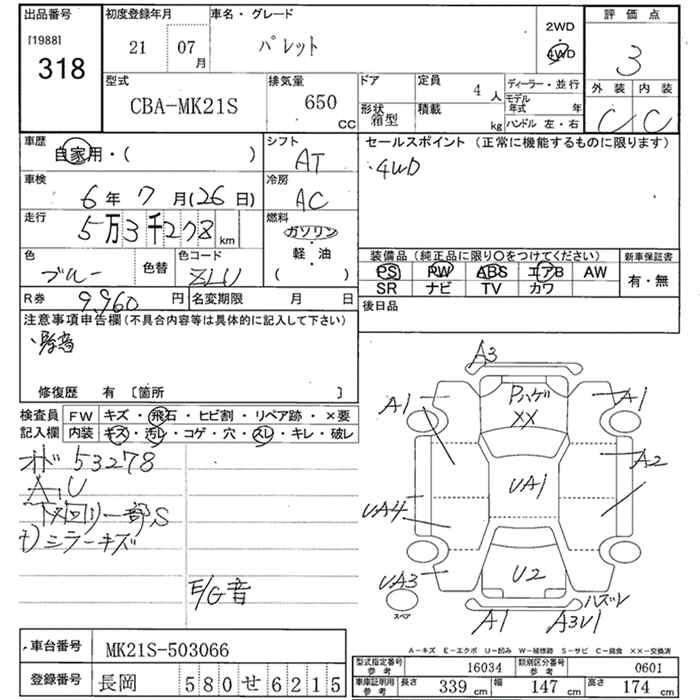 出品番号
[1988]
318
初度登録年月
21 07 月
車名・グレード
パレット
2WD
・
4WD
評価点
3
外装 内装
C C
型式
CBA-MK21S
排気量
650 CC
ドア
形状
箱型
定員
4 人
積載
kg
ディーラー・並行
モデル年式 年
ハンドル 左・右
車歴
自家用・( )
シフト
AT
車検
6年 7月(26日)
冷房
AC
走行
5万3千278 km
燃料
ガソリン
・
軽・油
( )
色
ブルー
色替
色コード
ZLU
R券
9,960 円
名変期限 月 日
セールスポイント (正常に機能するものに限ります)
・4WD
装備品(純正品に限り〇をつけてください)
PS PW ABS エアB AW
SR ナビ TV カワ
新車保証書
有・無
後日品
注意事項申告欄(不具合内容等は具体的に記入して下さい)
修復歴 有 〔箇所 〕
検査員
記入欄
FW キズ・飛石・ヒビ割・リペア跡・×要
内装 キズ・汚レ・コゲ・穴・スレ・キレ・破レ
オド 53278
A,U
下廻り一部S
ミラーキズ
E/G音
A3
Pハゲ
XX
A1
A1
A2
UA1
UA4
UA3
U2
ハズレ
A1
A3U1
スペア
A-キズ E-エクボ U-凹み W-補修跡 S-サビ C-腐食 XX-交換済
車台番号
MK21S-503066
登録番号
長岡 580せ6215
型式指定番号
参考
16034
類別区分番号
参考
0601
車庫証明用
参考
長さ 339 cm 幅 147 cm 高さ 174 cm